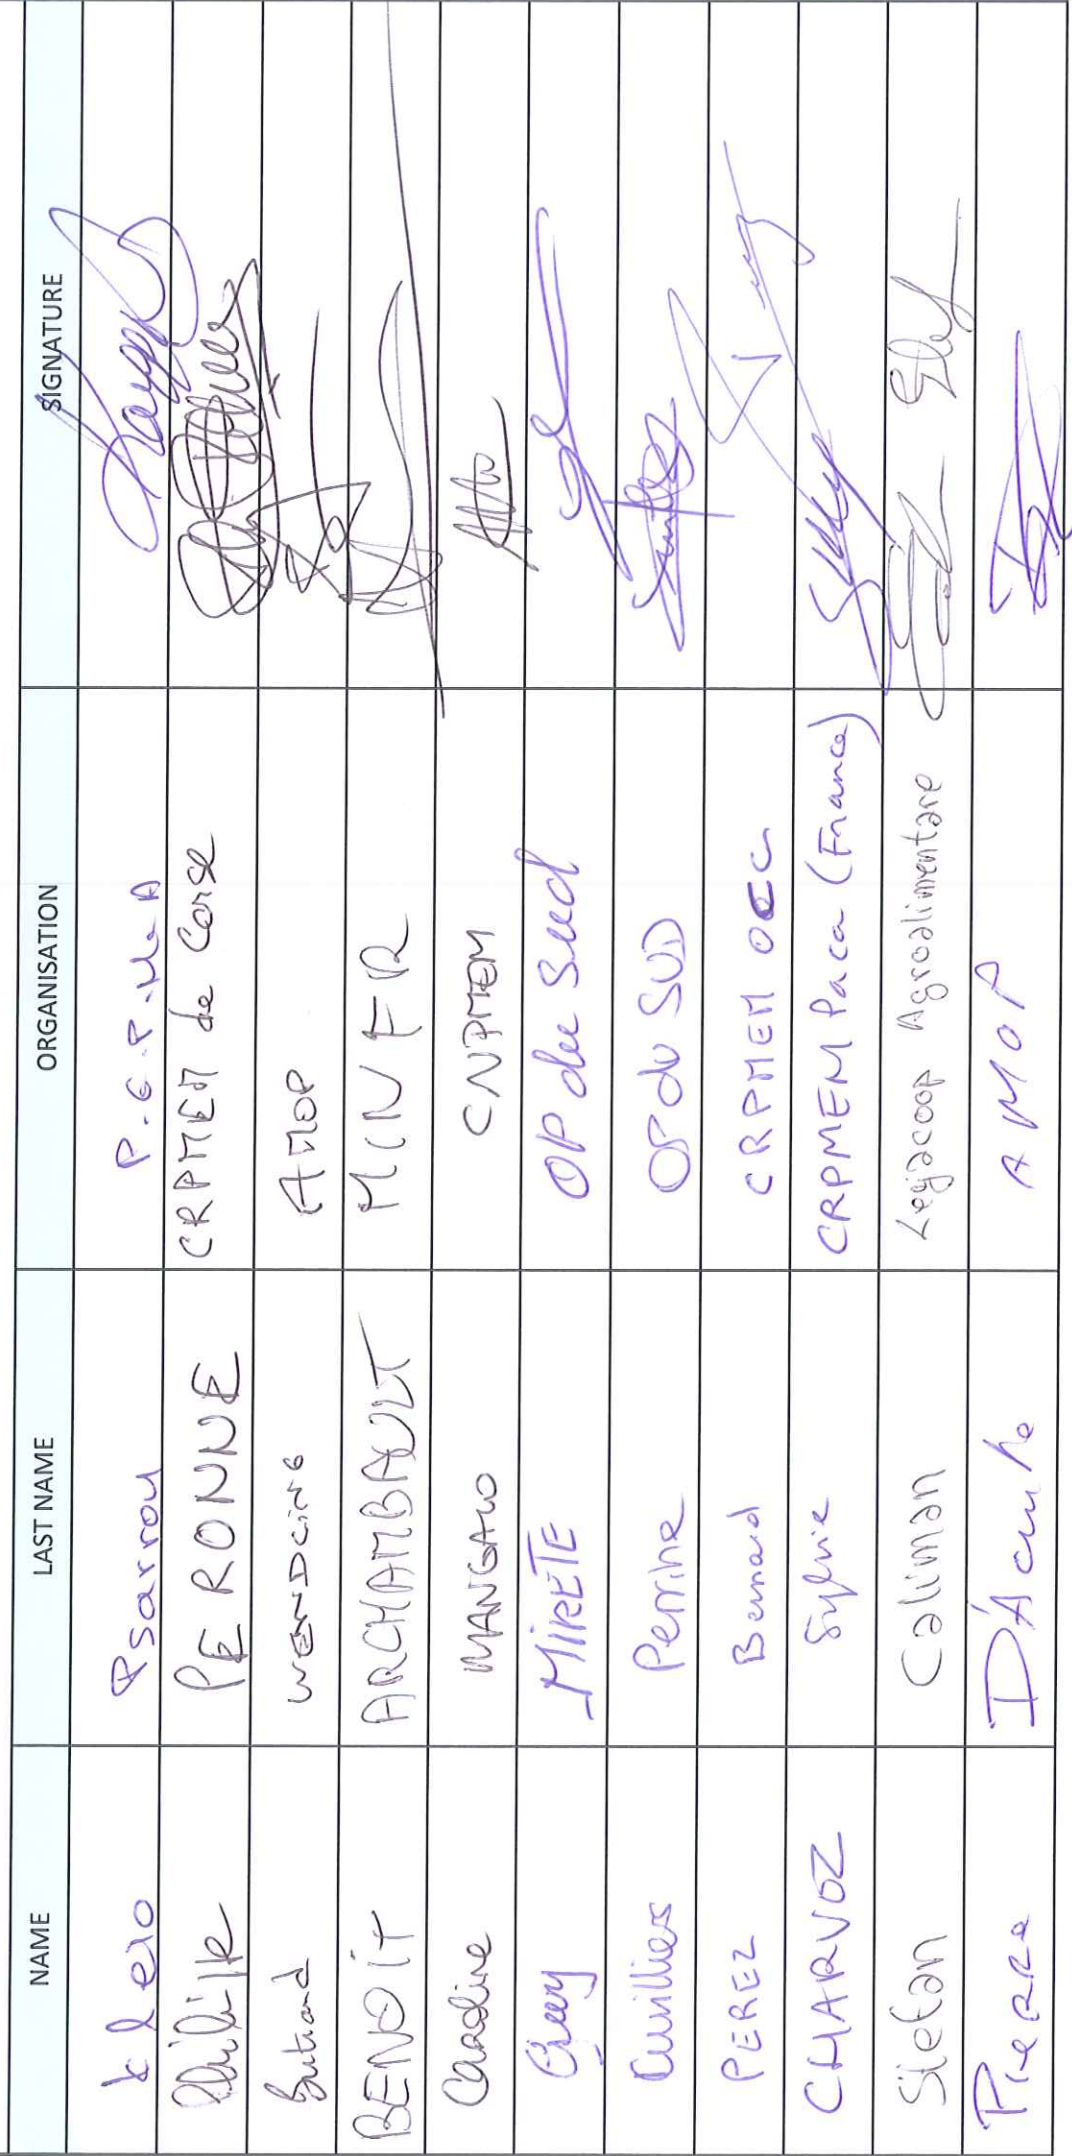 NAME LAST NAME ORGANISATION SIGNATURE
Kleio Psarrou P.E.P.M.A
Philippe PERONNE CRPMEM de Corse
Bertrand WENDLING AMOP
BENOIT ARCHAMBAULT MIN FR
Caroline MANGALO CNPMEM
Guy MIRETE OP du Sud
Cuvilliers Perrine OP du SUD
PEREZ Bernard CRPMEM OCC
CHARVOZ Sylvie CRPMEM Paca (France)
Stefan Caliman Legacoop Agroalimentare
Pierre D'Acunto AMOP